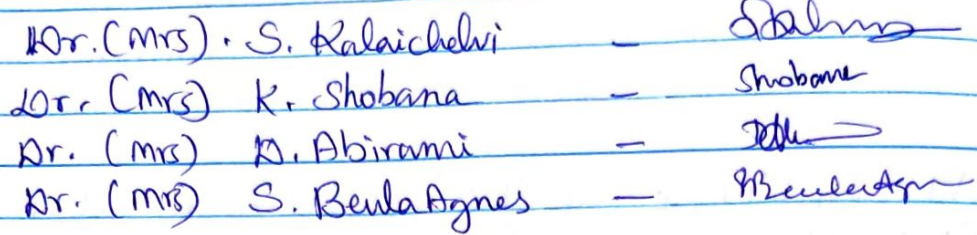 Dr. (Mrs). S. Kalaichelvi -
Dr. (Mrs) K. Shobana - Shobana
Dr. (Mrs) D. Abirami -
Dr. (Mrs) S. Beula Agnes -